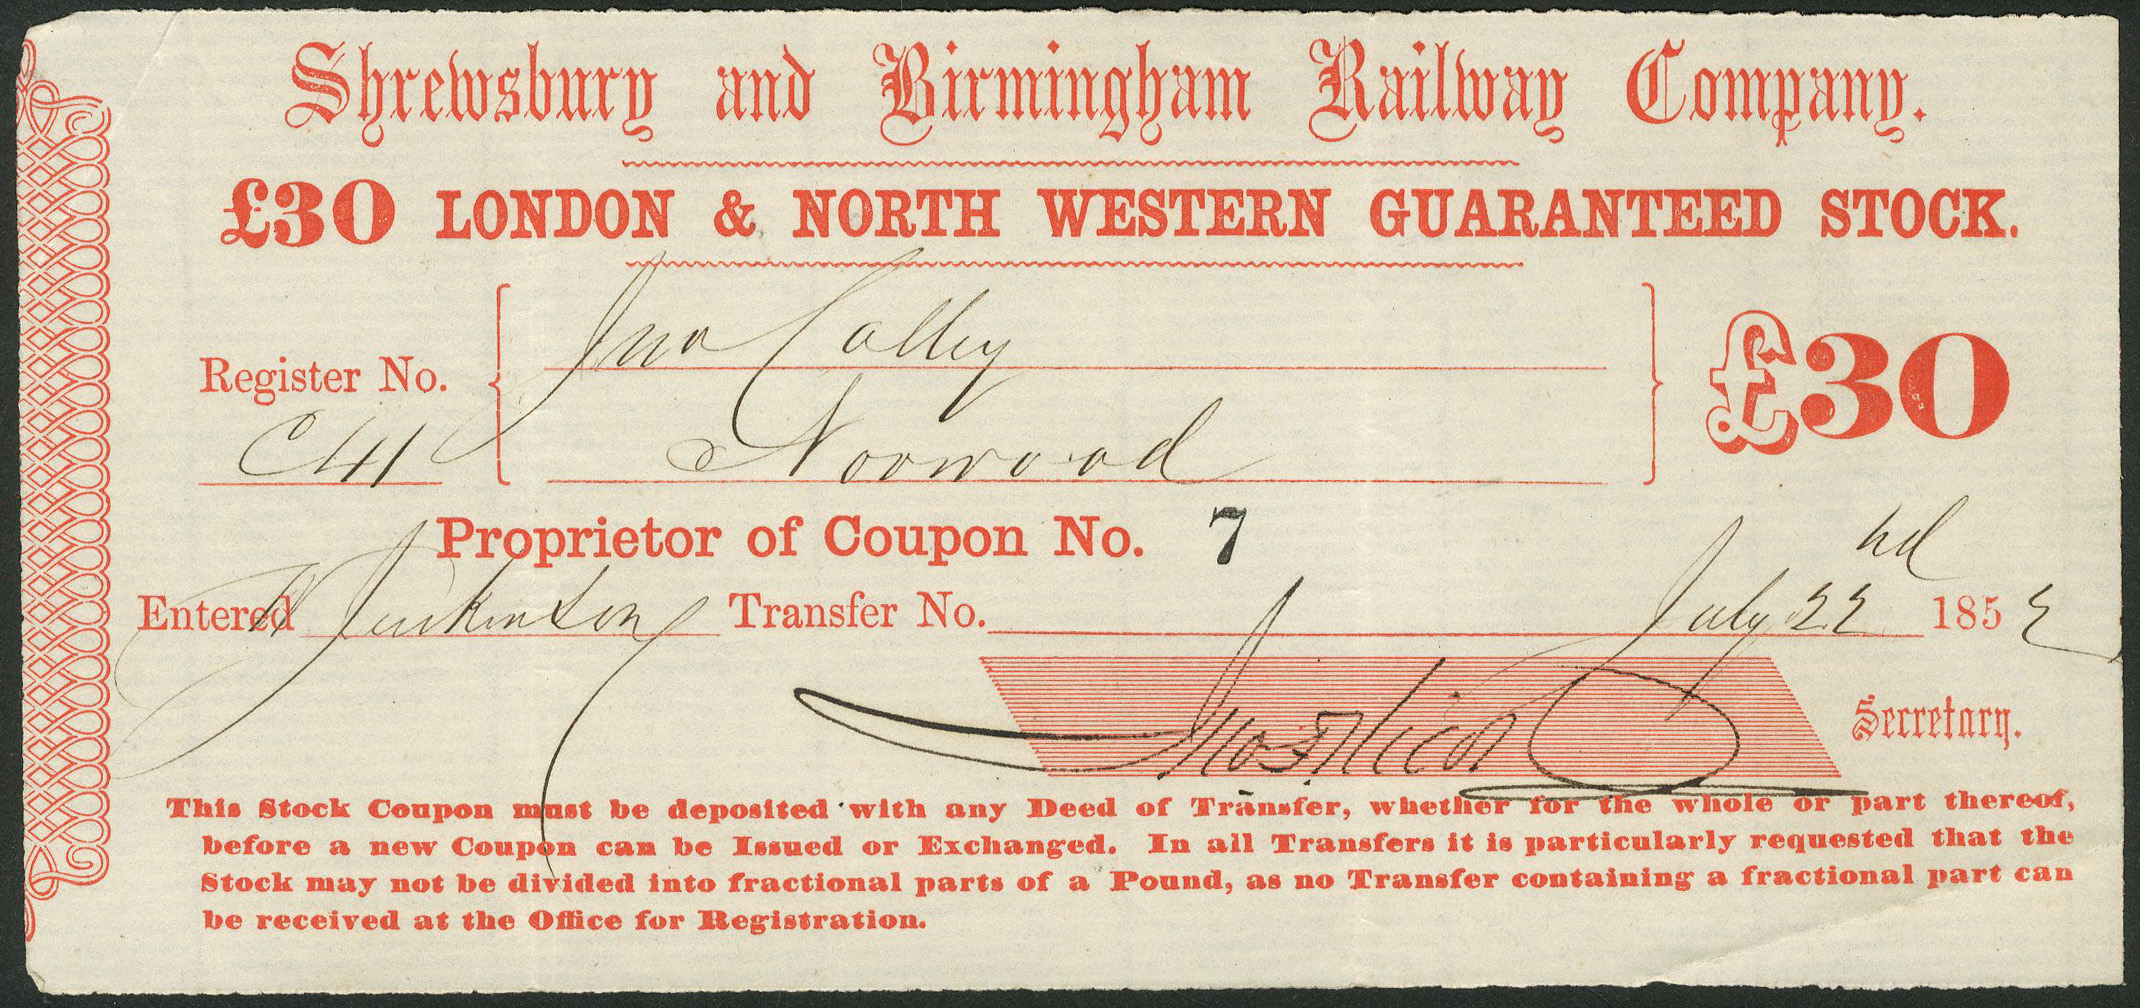 Shrewsbury and Birmingham Railway Company.
£30 LONDON & NORTH WESTERN GUARANTEED STOCK.
Jno Colley
Register No. £30
C41 Norwood
Proprietor of Coupon No. 7
Entered Jenkinson Transfer No. July 22nd 1852
Secretary.
This Stock Coupon must be deposited with any Deed of Transfer, whether for the whole or part thereof,
before a new Coupon can be Issued or Exchanged. In all Transfers it is particularly requested that the
Stock may not be divided into fractional parts of a Pound, as no Transfer containing a fractional part can
be received at the Office for Registration.